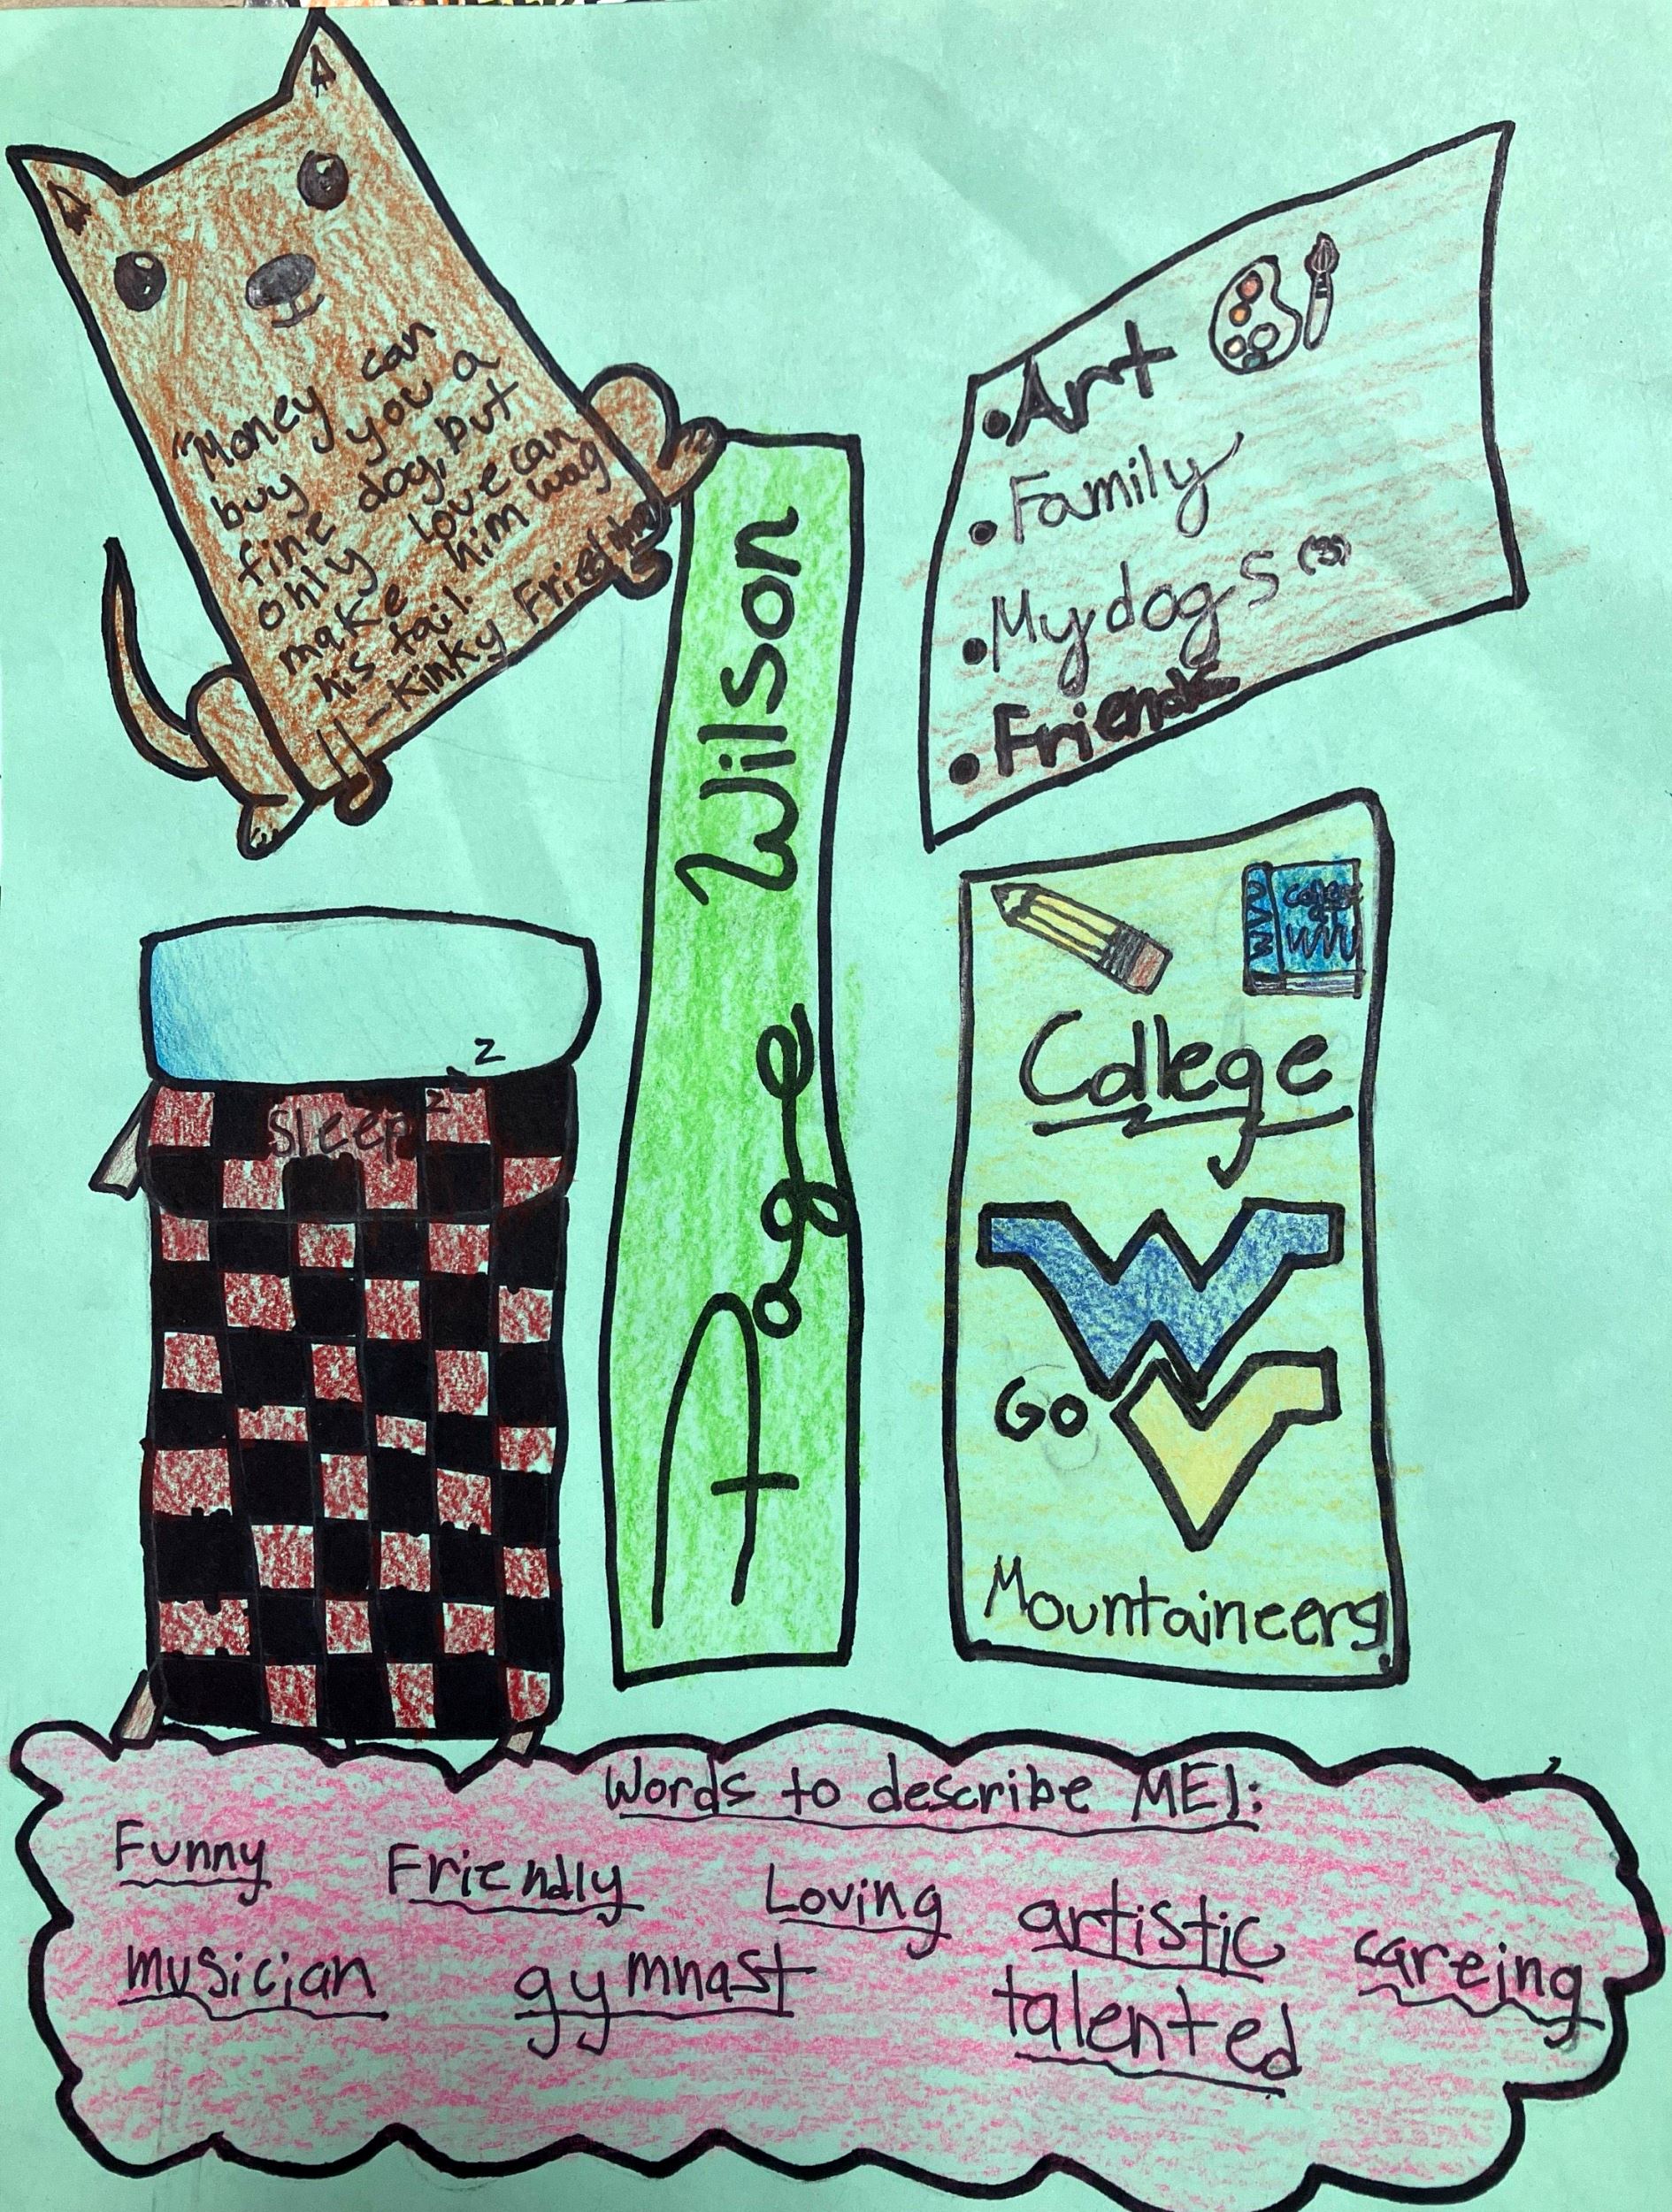 "Money can
buy you a
fine dog, but
only love can
make him wag
his tail.
-Kinky Friedman
• Art
• Family
• My dogs (3)
• Friends
Page Wilson
z
z
Sleep
WVU
College
at
WVU
College
WV
Go
Mountaineers
Words to describe ME!:
Funny Friendly Loving artistic careing
musician gymnast talented